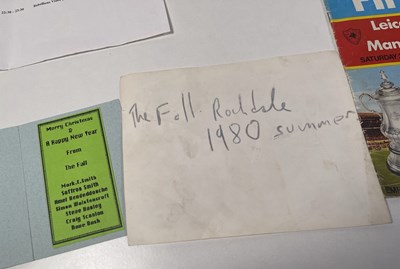 The Fall. Rochdale
1980 summer
Merry Christmas
&
A Happy New Year
From
The Fall
Mark.E.Smith
Saffron Smith
Simon Wolstencroft
Steve Hanley
Craig Scanlon
Dave Bush
Leice
Man
SATURDAY